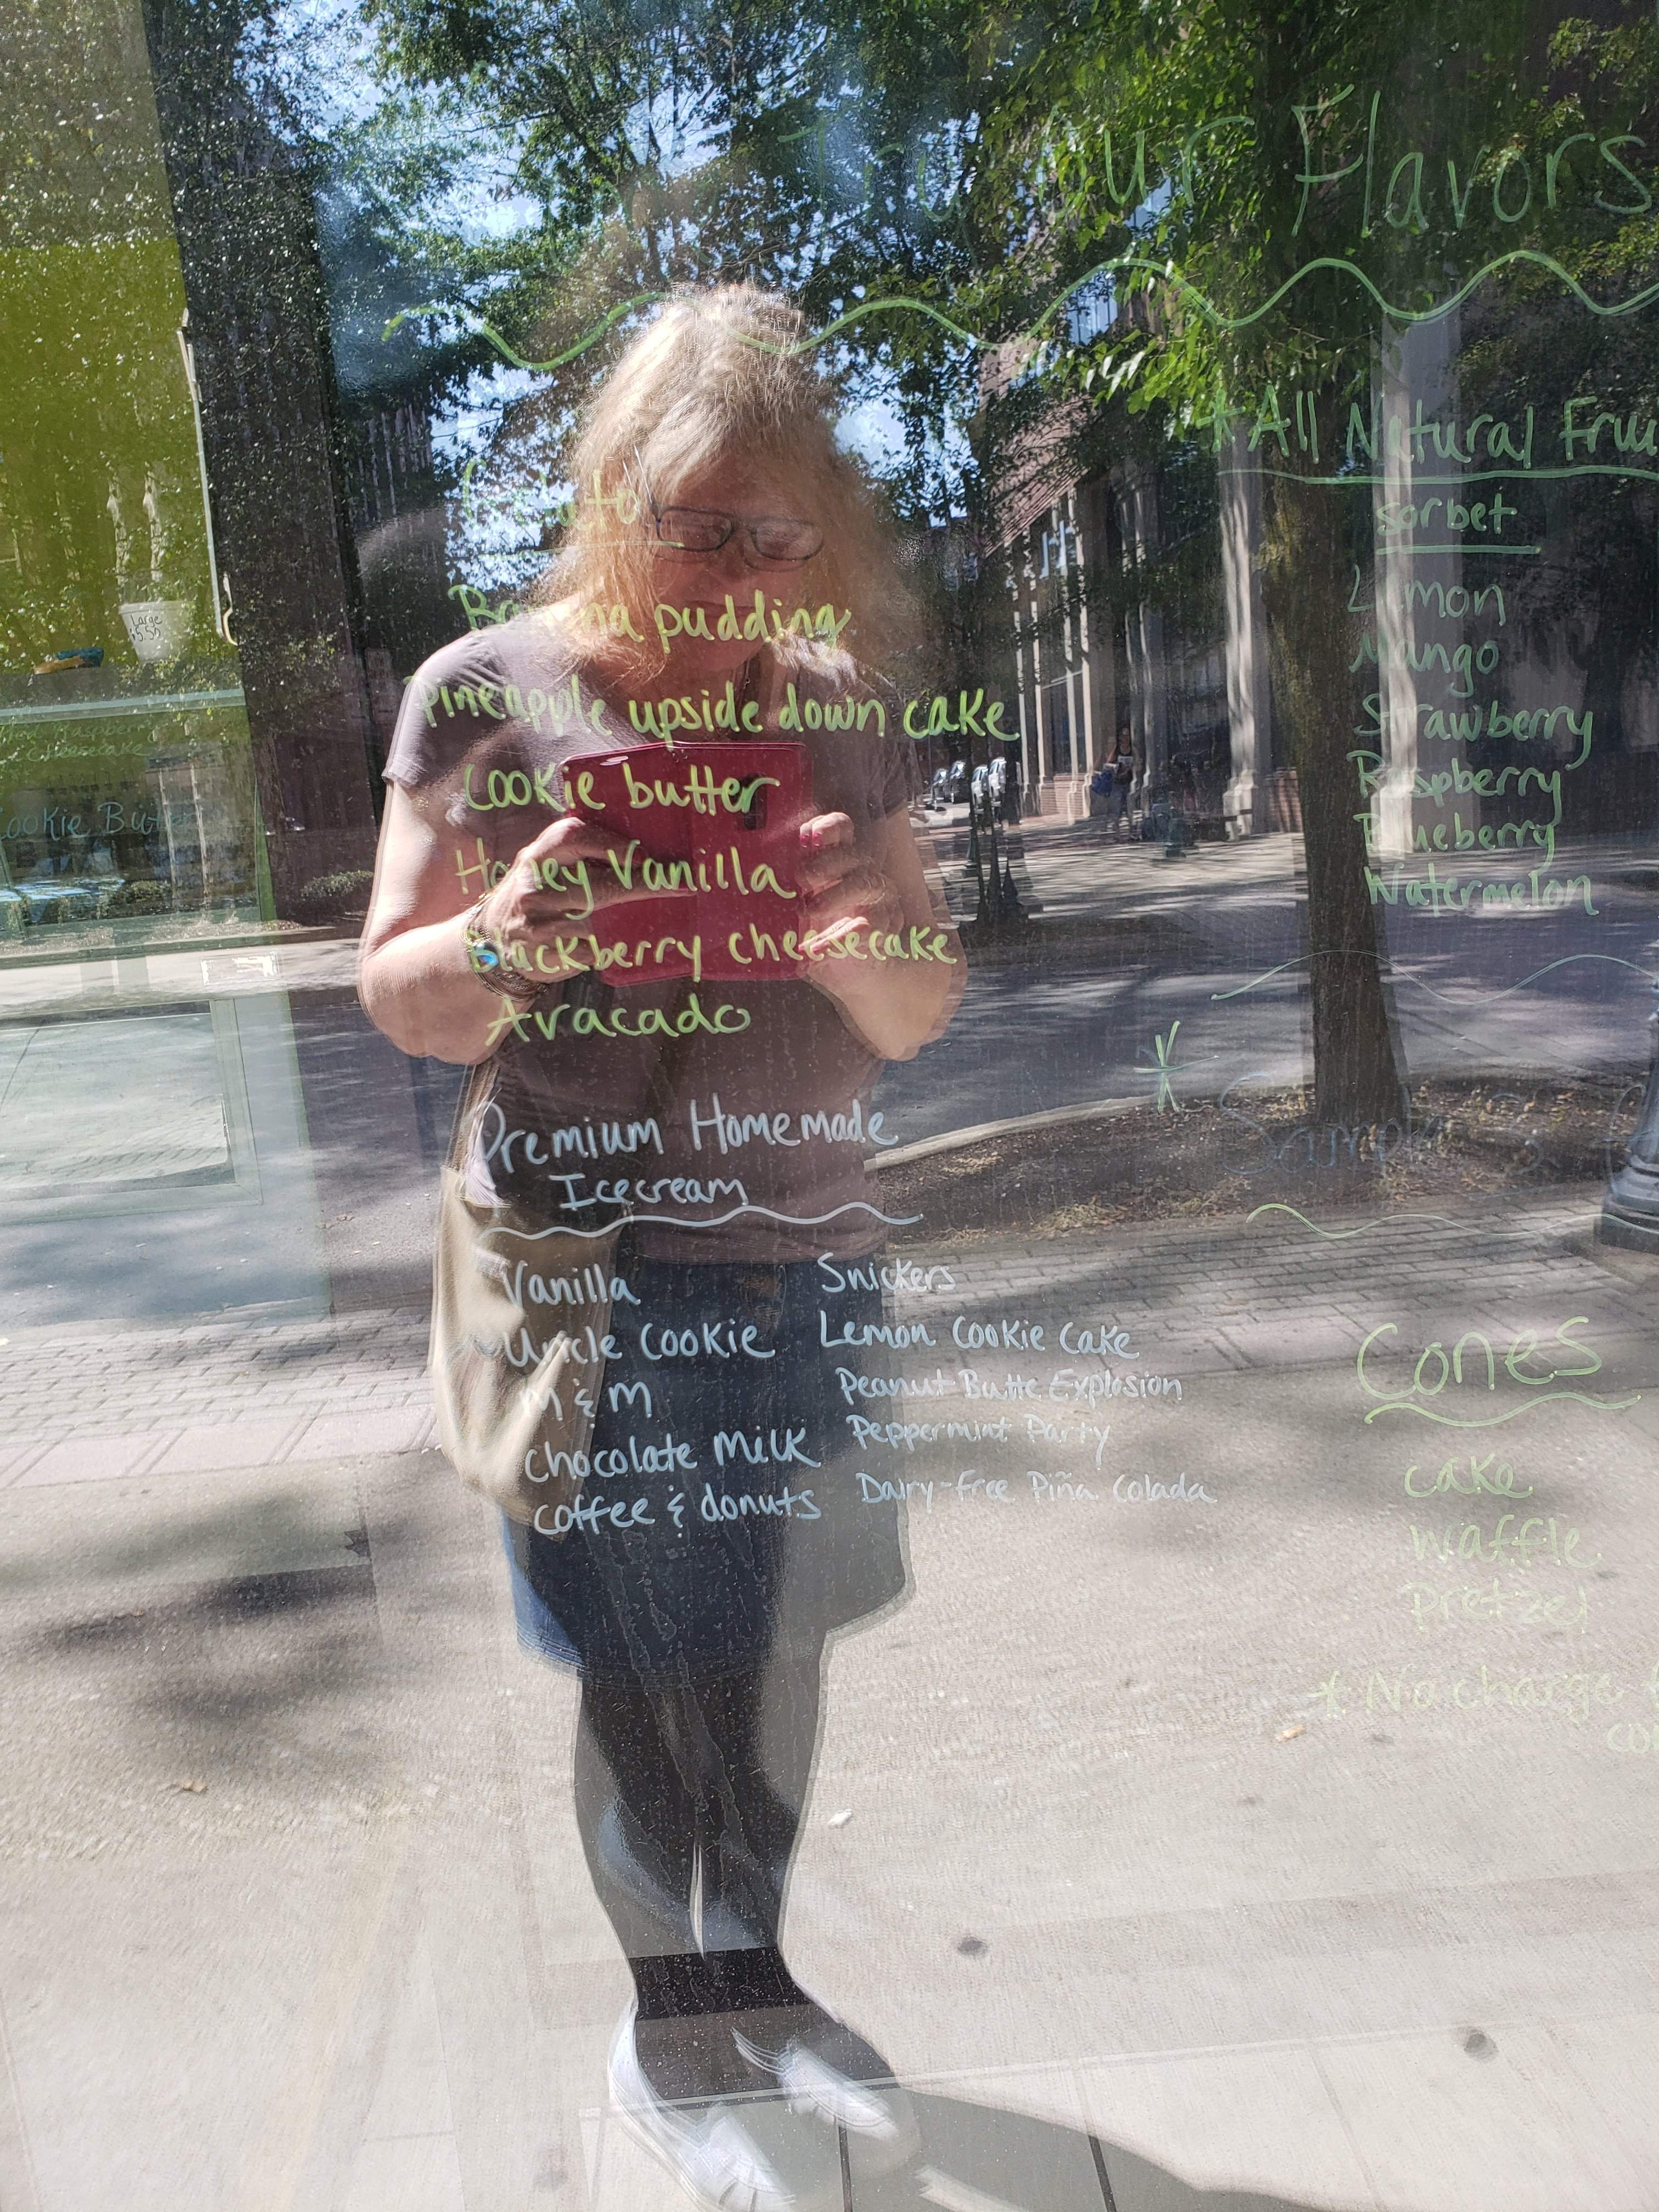 Try Our Flavors
Gelato
Banana pudding
Pineapple upside down cake
Cookie butter
Honey Vanilla
Blackberry cheesecake
Avacado
Premium Homemade
Icecream
Vanilla
Uncle Cookie
M & M
Chocolate Milk
Coffee & donuts
Snickers
Lemon Cookie Cake
Peanut Butte Explosion
Peppermint Party
Dairy-Free Piña Colada
*All Natural
sorbet
Lemon
Mango
Strawberry
Raspberry
Blueberry
Watermelon
* Samples
Cones
cake
waffle
pretzel
* No charge
Large
5.50
Raspberry
Cheesecake
Cookie Butter